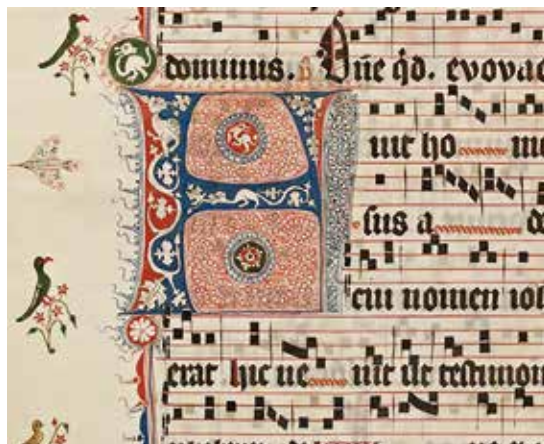 dominus. Dñe qd. evova
F uit ho mi
sus a de
cui nomen ioh
erat. hic ue nit ut testimon